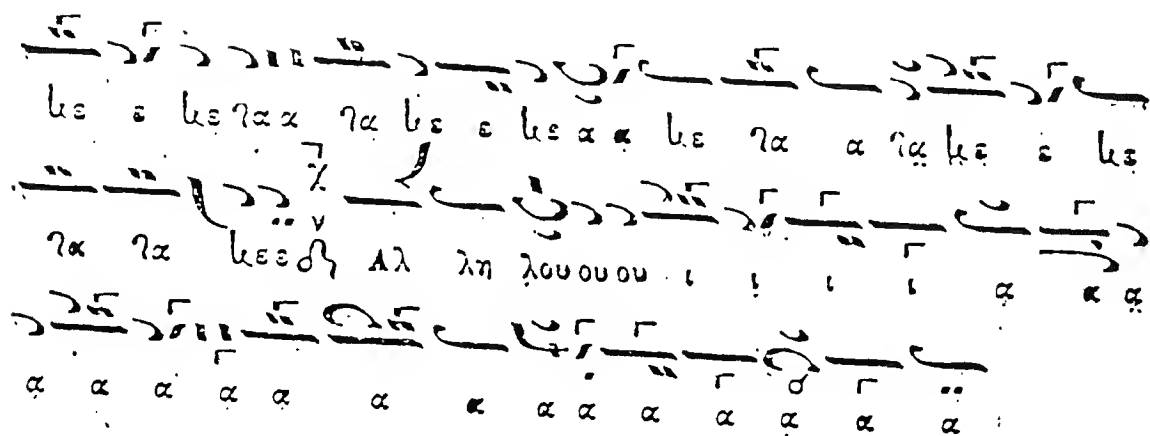 κε ε κε τα α τα κε ε κε α α κε τα α τα κε ε κε
τα τα κε ε ε Αλ λη λου ου ου ι ι ι ι α α α
α α α α α α α α α α α α α α